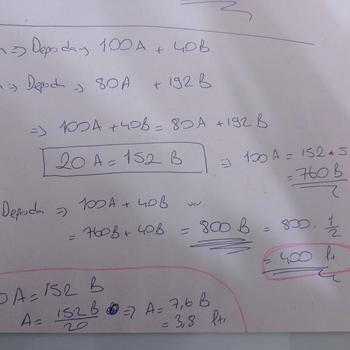 ⇒ Depoda → 100A + 40B
⇒ Depoda → 80A + 192B
⇒ 100A + 40B = 80A + 192B
20A = 152B ⇒ 100A = 152*5
= 760B
Depoda ⇒ 100A + 40B
= 760B + 40B = 800B = 800 · 1/2
= 400 lt
0A = 152B
A = 152B/20 ⇒ A = 7,6B
= 3,8 lt